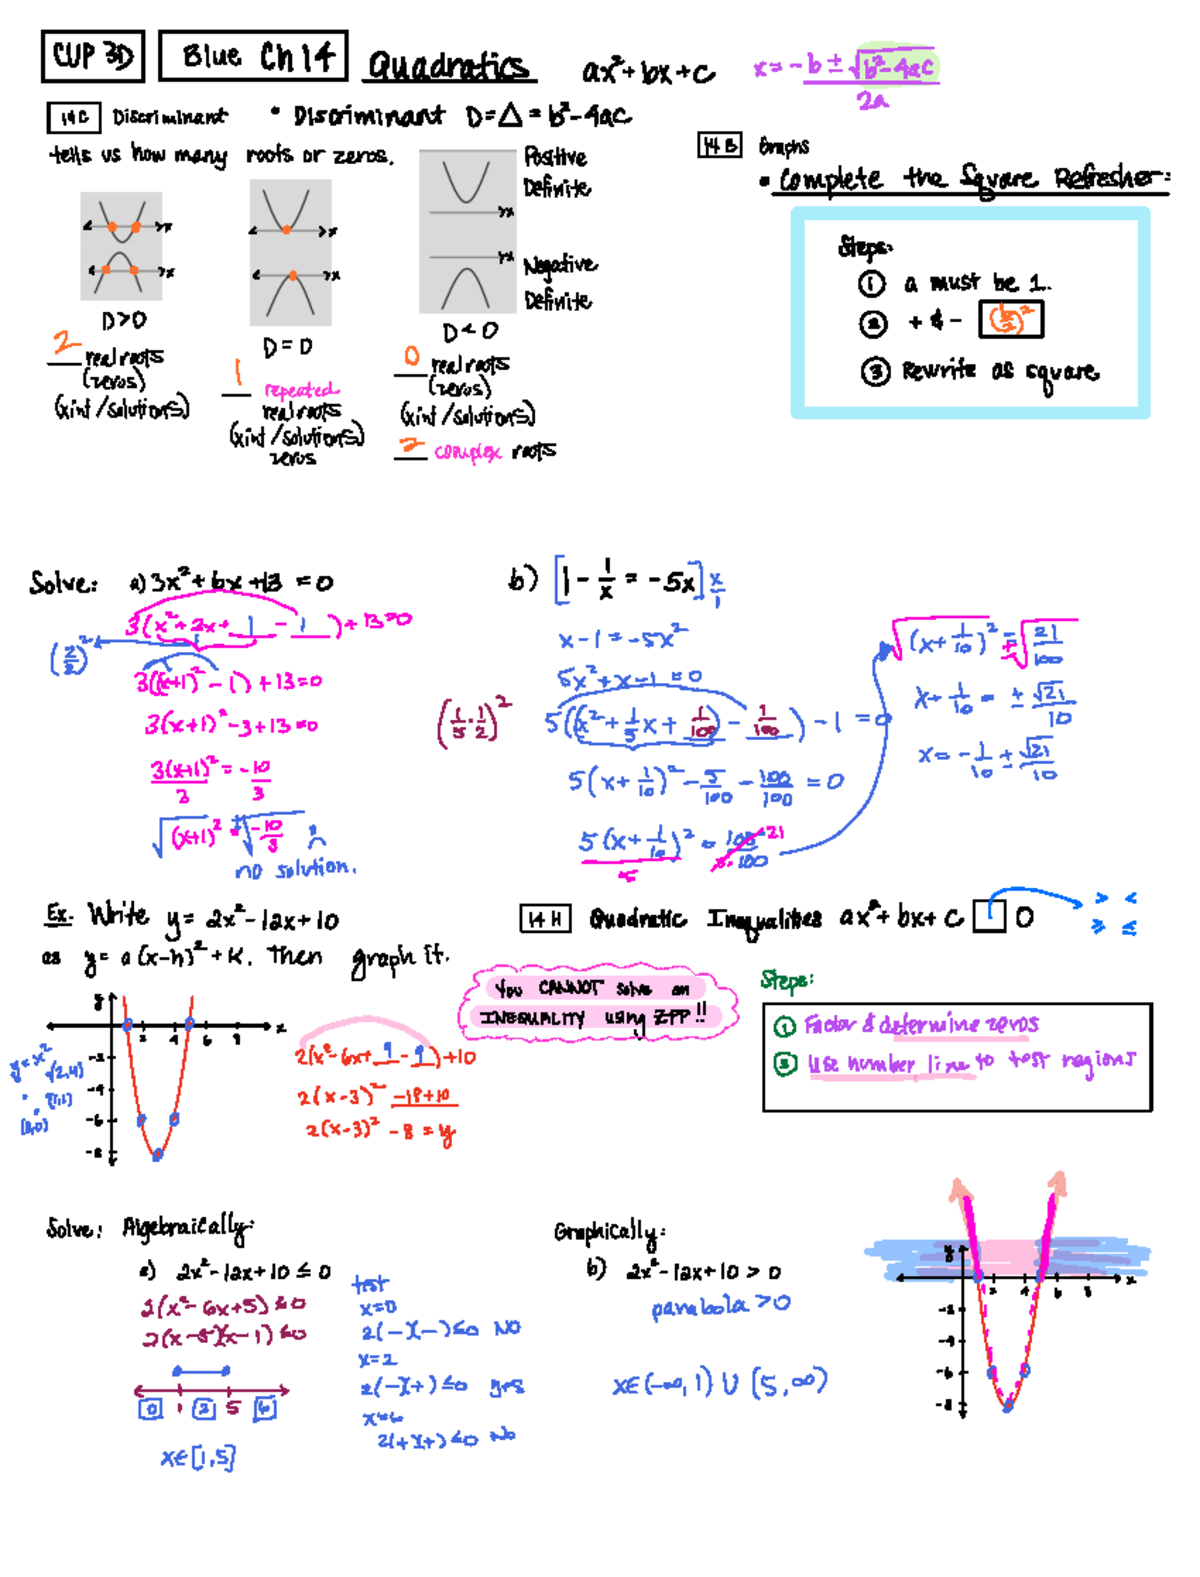 CUP 3D
Blue Ch 14
Quadratics
ax² + bx + c
x = -b ± √(b² - 4ac) / 2a
14C Discriminant
• Discriminant D = △ = b² - 4ac
tells us how many roots or zeros.
D > 0
2 real roots
(zeros)
(x int / solutions)
D = 0
1 repeated
real roots
(x int / solutions)
zeros
Positive
Definite
Negative
Definite
D < 0
0 real roots
(zeros)
(x int / solutions)
2 complex roots
14B Graphs
• Complete the Square Refresher:
Steps:
① a must be 1.
② + & - (b/2)²
③ Rewrite as square
Solve: a) 3x² + 6x + 13 = 0
3(x² + 2x + 1 - 1) + 13 = 0
(2/2)²
3((x+1)² - 1) + 13 = 0
3(x+1)² - 3 + 13 = 0
3(x+1)²/3 = -10/3
√(x+1)² = ±√-10/3
no solution.
b) [1 - 1/x = -5x] x/1
x - 1 = -5x²
5x² + x - 1 = 0
(1/5 · 1/2)²
5((x² + 1/5 x + 1/100) - 1/100) - 1 = 0
5(x + 1/10)² - 5/100 - 100/100 = 0
5(x + 1/10)² = 105/100
5
21
√(x + 1/10)² = ±√21/100
x + 1/10 = ± √21/10
x = -1/10 ± √21/10
Ex. Write y = 2x² - 12x + 10
as y = a(x-h)² + k. Then graph it.
y = x²
(2,4)
(1,1)
(0,0)
2(x² - 6x + 9 - 9) + 10
2(x-3)² - 18 + 10
2(x-3)² - 8 = y
14H Quadratic Inequalities ax² + bx + c □ 0
> <
≥ ≤
You CANNOT solve an
INEQUALITY using ZPP!!
Steps:
① Factor & determine zeros
② Use number line to test regions
Solve: Algebraically:
a) 2x² - 12x + 10 ≤ 0
2(x² - 6x + 5) ≤ 0
2(x-5)(x-1) ≤ 0
0 1 2 5 6
x∈[1,5]
test
x=0
2(-)(-) ≤ 0 NO
x=2
2(-)(+) ≤ 0 yes
x=6
2(+)(+) ≤ 0 No
Graphically:
b) 2x² - 12x + 10 > 0
parabola > 0
x∈(-∞, 1) ∪ (5, ∞)